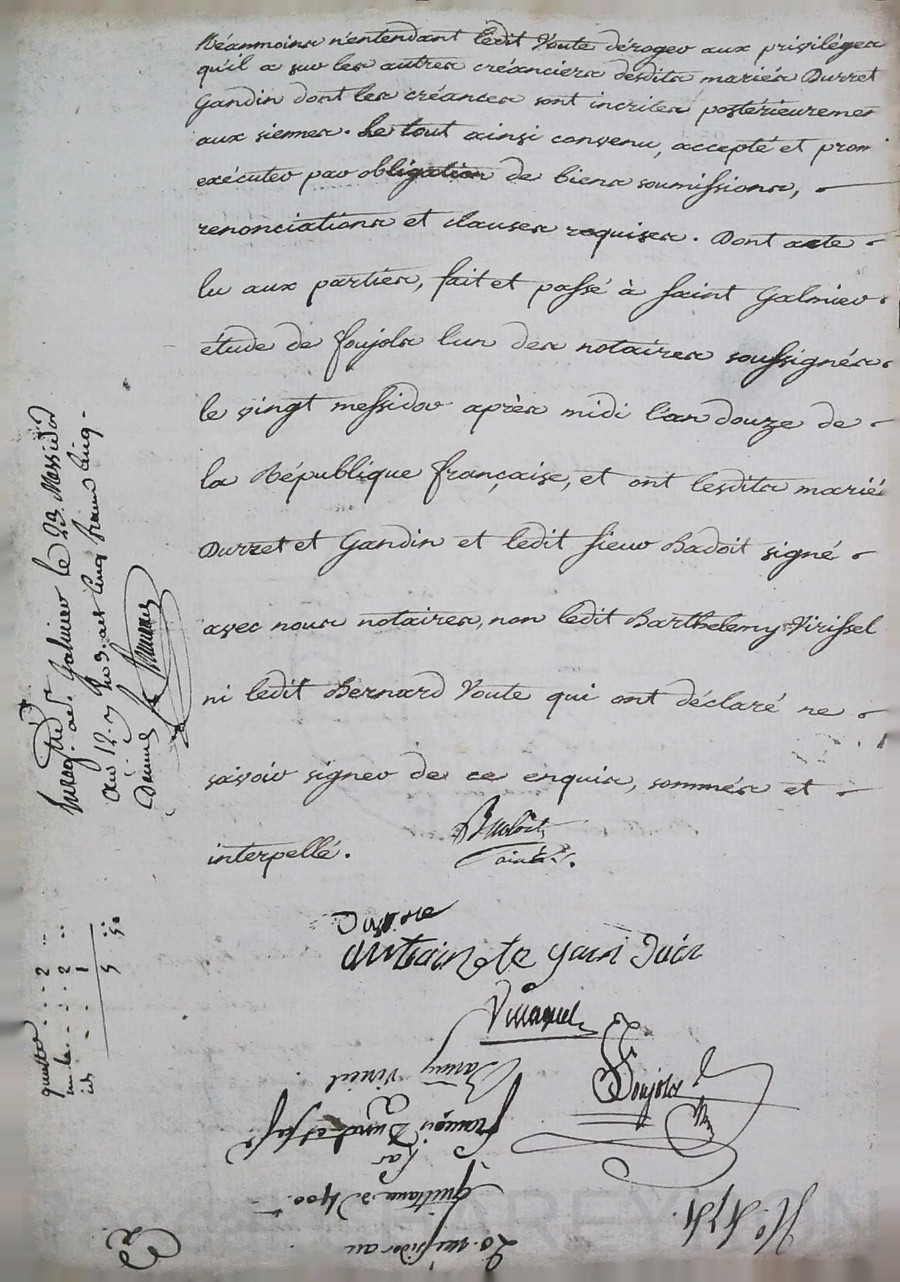 Néanmoins n'entendant ledit Voute déroger aux privilèges
qu'il a sur les autres créanciers desdits mariés Durret
Gandin dont les créances sont incrites postérieuremen
aux siennes. Le tout ainsi convenu, accepté et promi
exécuter par obligation de biens soumissions,
renonciations et clauses requises. Dont acte
lu aux parties, fait et passé à Saint Galmier
étude de Foujols l'un des notaires soussignés
le vingt messidor après midi l'an douze de
la République française, et ont lesdits marié
Durret et Gandin et ledit sieur Badoit signé
avec nous notaires, non ledit Barthelemy Virissel
ni ledit Bernard Voute qui ont déclaré ne
savoir signer de ce enquis, sommés et
interpellé.
Badoit
ainé
Durre
Foujols
Enregtré à St Galmier le 23 Messidor
an 12
cinq francs cinq
quitte 2
2
id 1
5 50
Barmy Virissel
françois Durret et sa fe
Par
quittance de 400
20 messidor an